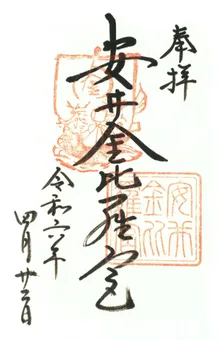 奉拝
安井金比羅宮
令和六年
四月廿二日
安井
金比
羅宮